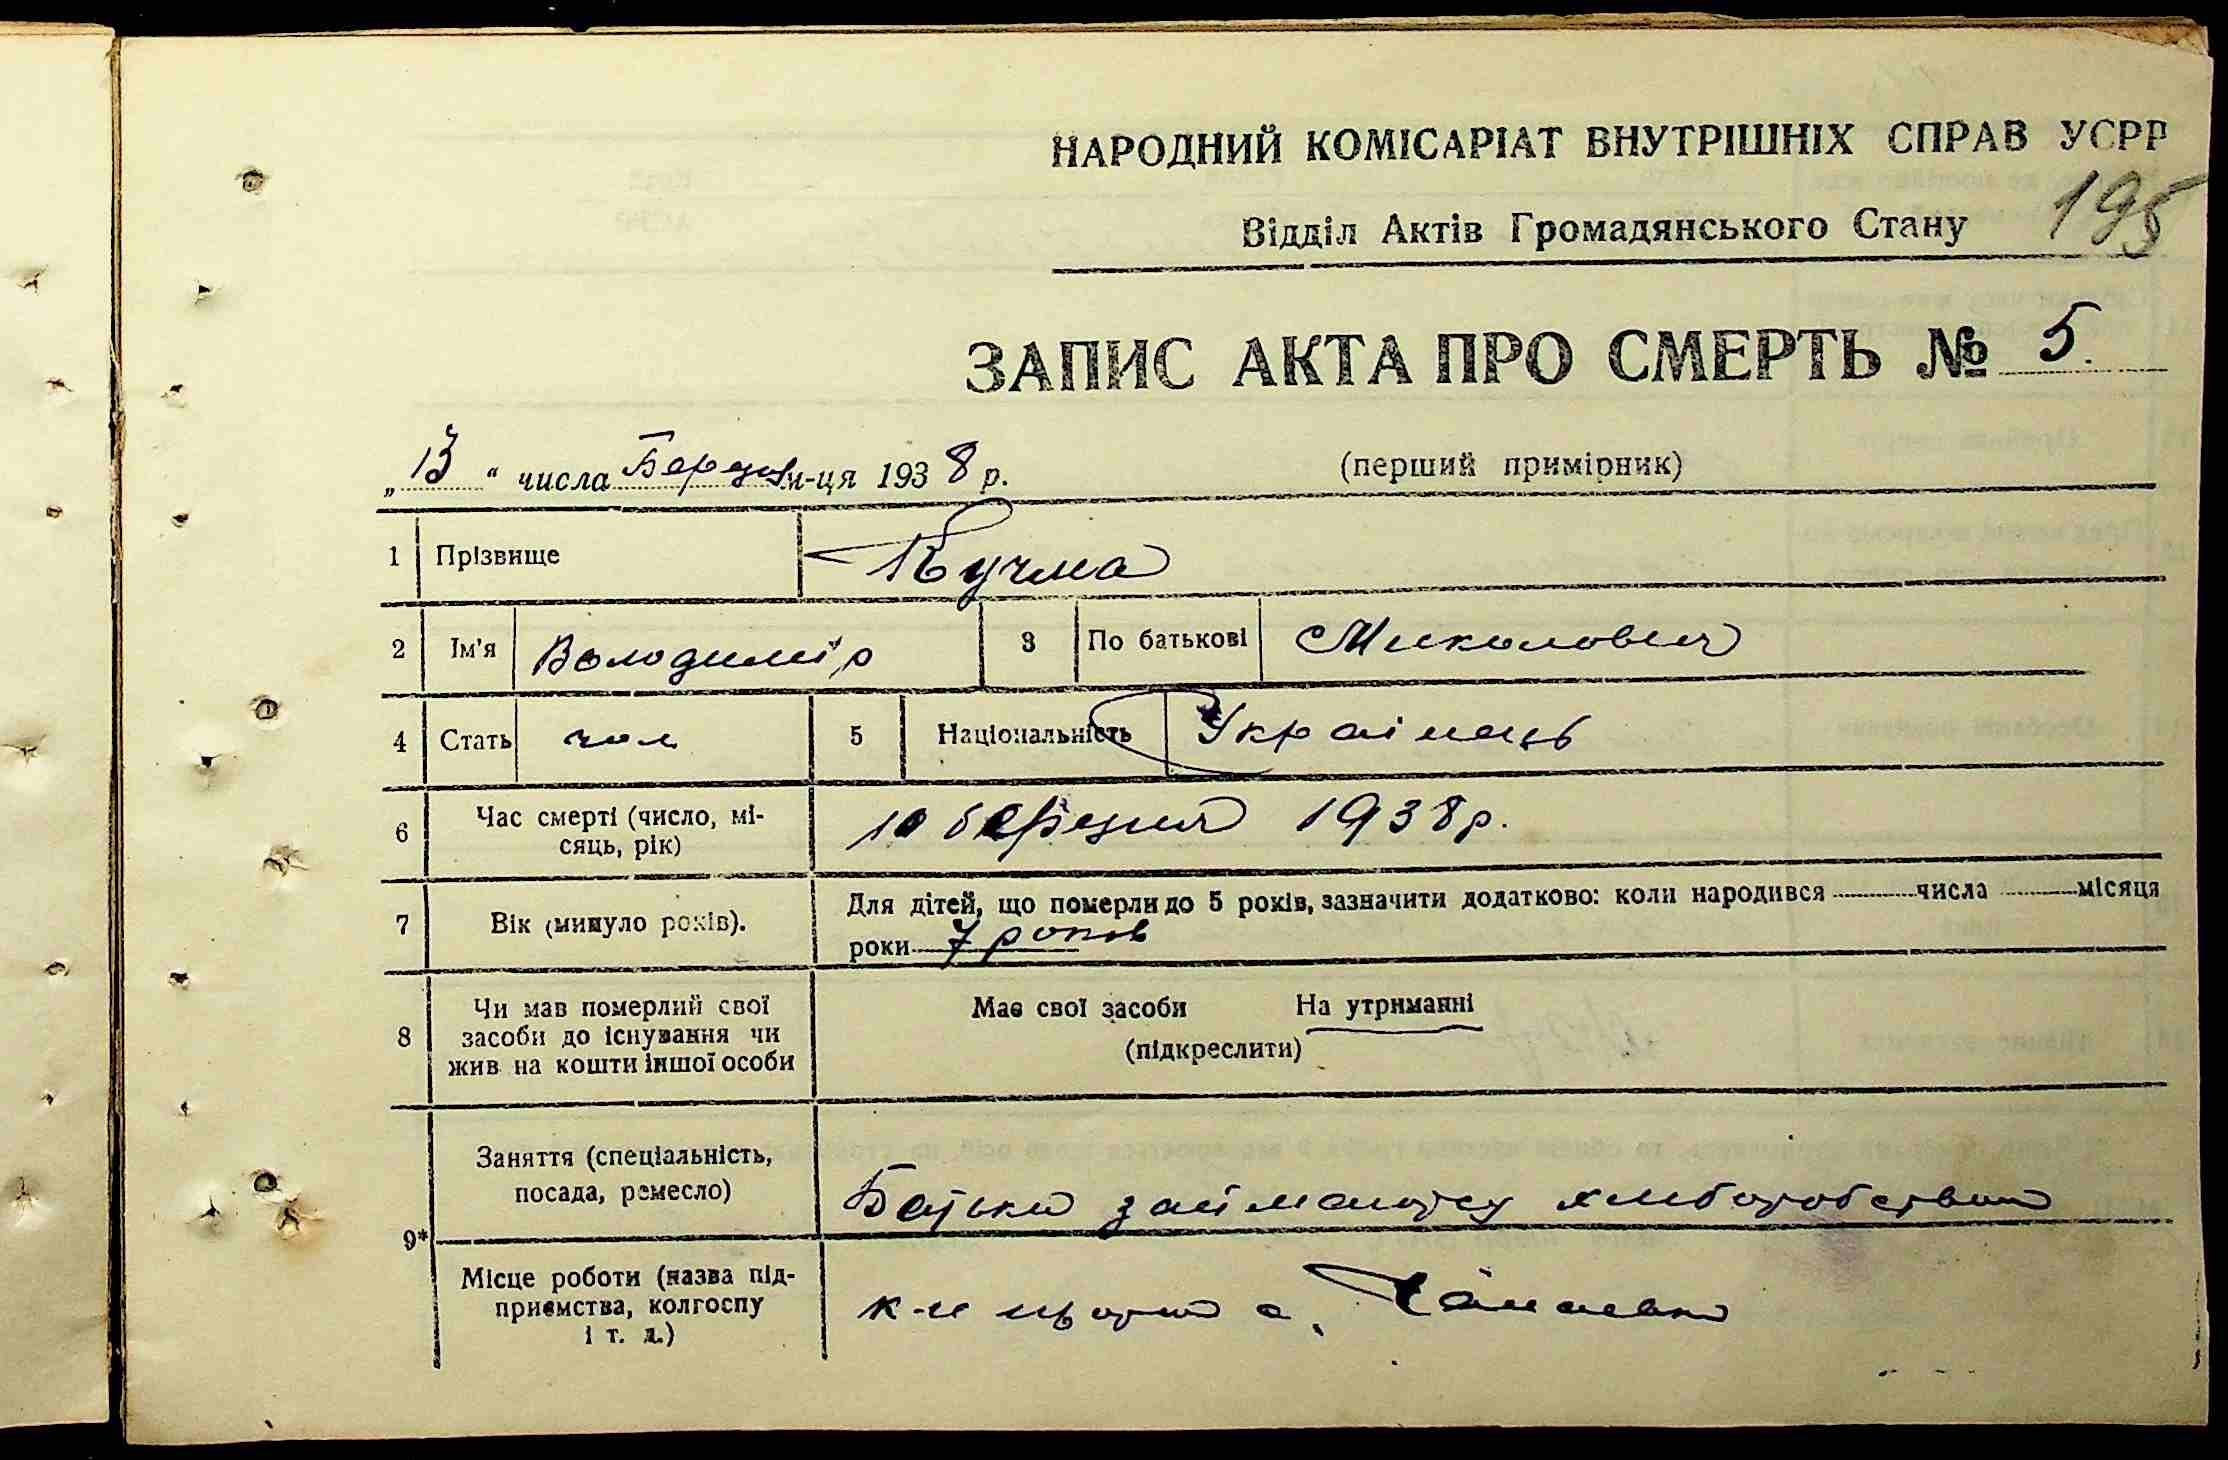 НАРОДНИЙ КОМІСАРІАТ ВНУТРІШНІХ СПРАВ УСРР
195
Відділ Актів Громадянського Стану
ЗАПИС АКТА ПРО СМЕРТЬ № 5.
„13“ числа Березня м-ця 1938 р.
(перший примірник)
1 Прізвище Кучма
2 Ім'я Володимір 3 По батькові Миколович
4 Стать чол 5 Національність Українець
6 Час смерті (число, мі-
сяць, рік) 10 березня 1938 р.
7 Вік (минуло років). Для дітей, що померли до 5 років, зазначити додатково: коли народився числа місяця
роки 7 років
8 Чи мав померлий свої
засоби до існування чи
жив на кошти іншої особи
Має свої засоби На утриманні
(підкреслити)
9* Заняття (спеціальність,
посада, ремесло) Батьки займаються хліборобством
Місце роботи (назва під-
приємства, колгоспу
і т. д.)
с.